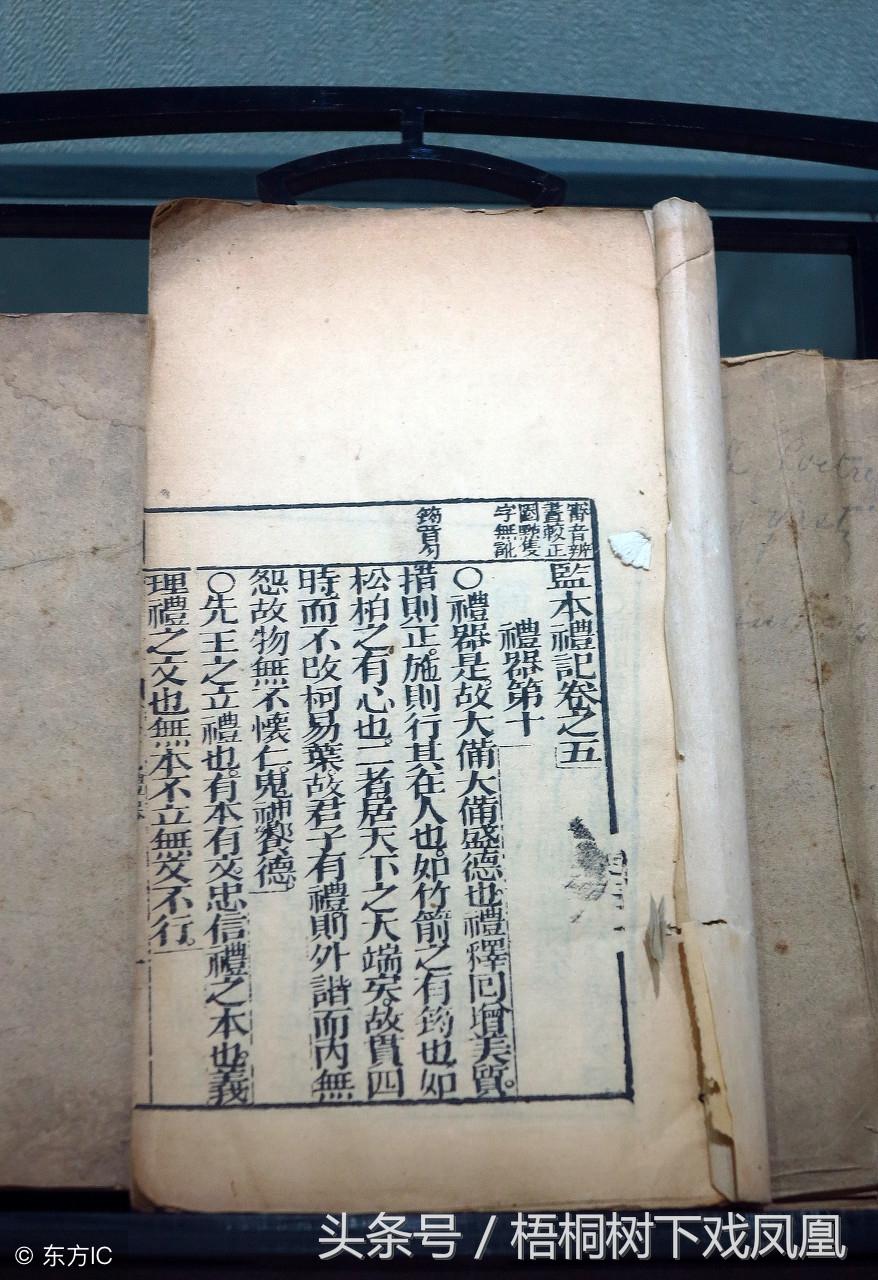 審音辨
畫較正
圈點隻
字無訛
監本禮記卷之五
禮器第十
○禮器是故大備大備盛德也禮釋回增美質。
措則正。施則行其在人也。如竹箭之有筠也如
松柏之有心也。二者居天下之大端矣。故貫四
時而不改柯易葉。故君子有禮則外諧而內無
怨故物無不懷仁。鬼神饗德。
○先王之立禮也。有本有文。忠信禮之本也。義
理禮之文也無本不立無文不行。
© 东方IC
头条号 / 梧桐树下戏凤凰